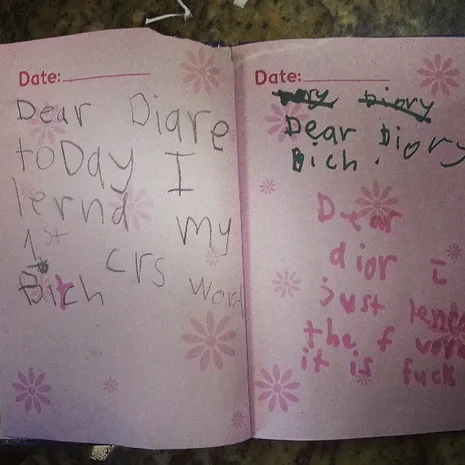 Date:
Dear Diare
toDay I
lernd my
1st crs word
Bitch
Date:
Diory
Dear Diory
Bich.
Dear
dior I
just
the f word
it is fuck